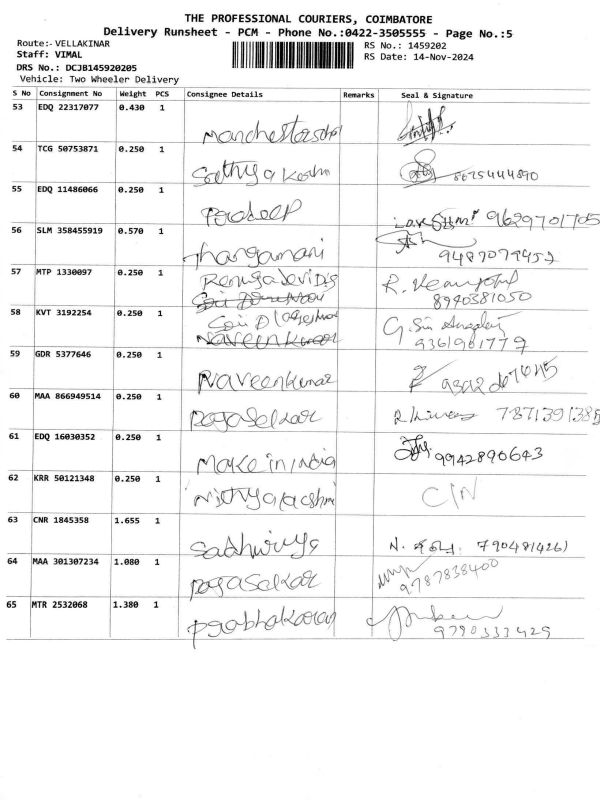 THE PROFESSIONAL COURIERS, COIMBATORE
Delivery Runsheet - PCM - Phone No.:0422-3505555 - Page No.:5
Route:- VELLAKINAR
RS No.: 1459202
Staff: VIMAL
RS Date: 14-Nov-2024
DRS No.: DCJB145920205
Vehicle: Two Wheeler Delivery
S No Consignment No Weight PCS Consignee Details Remarks Seal & Signature
53 EDQ 22317077 0.430 1
54 TCG 50753871 0.250 1
Sathya 8675444890
55 EDQ 11486066 0.250 1
Pradeep 9629701705
56 SLM 358455919 0.570 1
Thangamani 9487079452
57 MTP 1330097 0.250 1
Renugadevi
R. 8940381050
58 KVT 3192254 0.250 1
Sri
Naveenkumar
9361901779
59 GDR 5377646 0.250 1
Naveenkumar
60 MAA 866949514 0.250 1
Rajasekar
61 EDQ 16030352 0.250 1
Make in india 9942890643
62 KRR 50121348 0.250 1
C/N
63 CNR 1845358 1.655 1
N.
64 MAA 301307234 1.080 1
Rajasekar 9787838400
65 MTR 2532068 1.380 1
Prabhakaran 9790333429